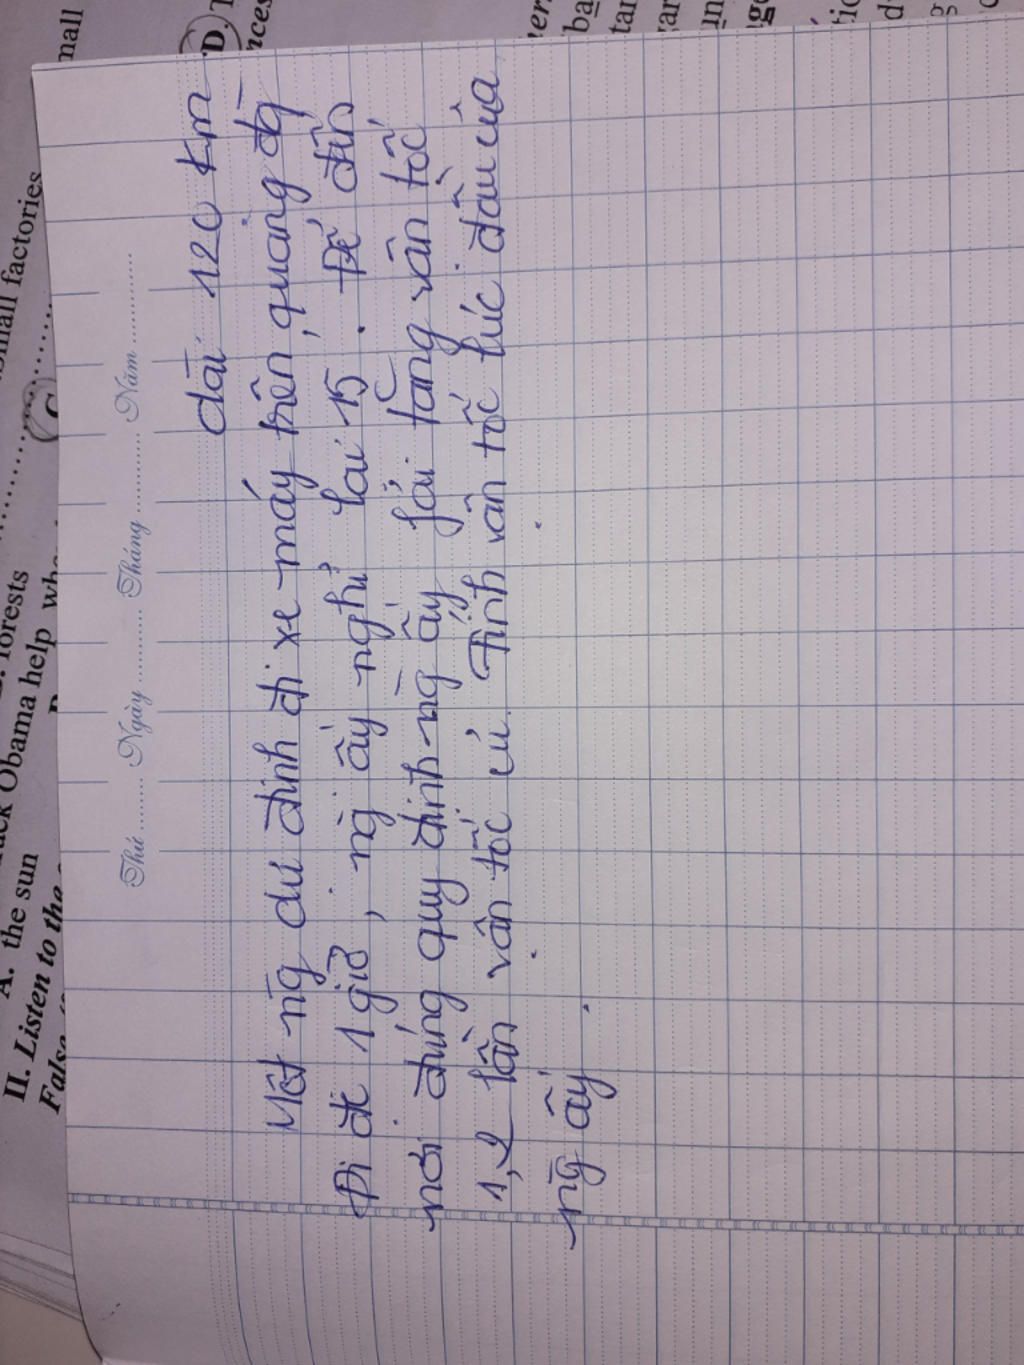 dài 120 km
Một ng̀ dự định đi xe máy trên quảng đg̀
Đi đc 1 giờ, ng̀ ấy nghỉ lại 15. Để đến
nơi đúng quy định ng̀ ấy fải tăng vận tốc
1,2 lần vận tốc cũ. Tính vận tốc lúc đầu của
ng̀ ấy.
Thứ ........ Ngày ........... Tháng ............... Năm ..............
A. the sun
forests
Obama help
II. Listen to the
False
small factories
C
D.
mall